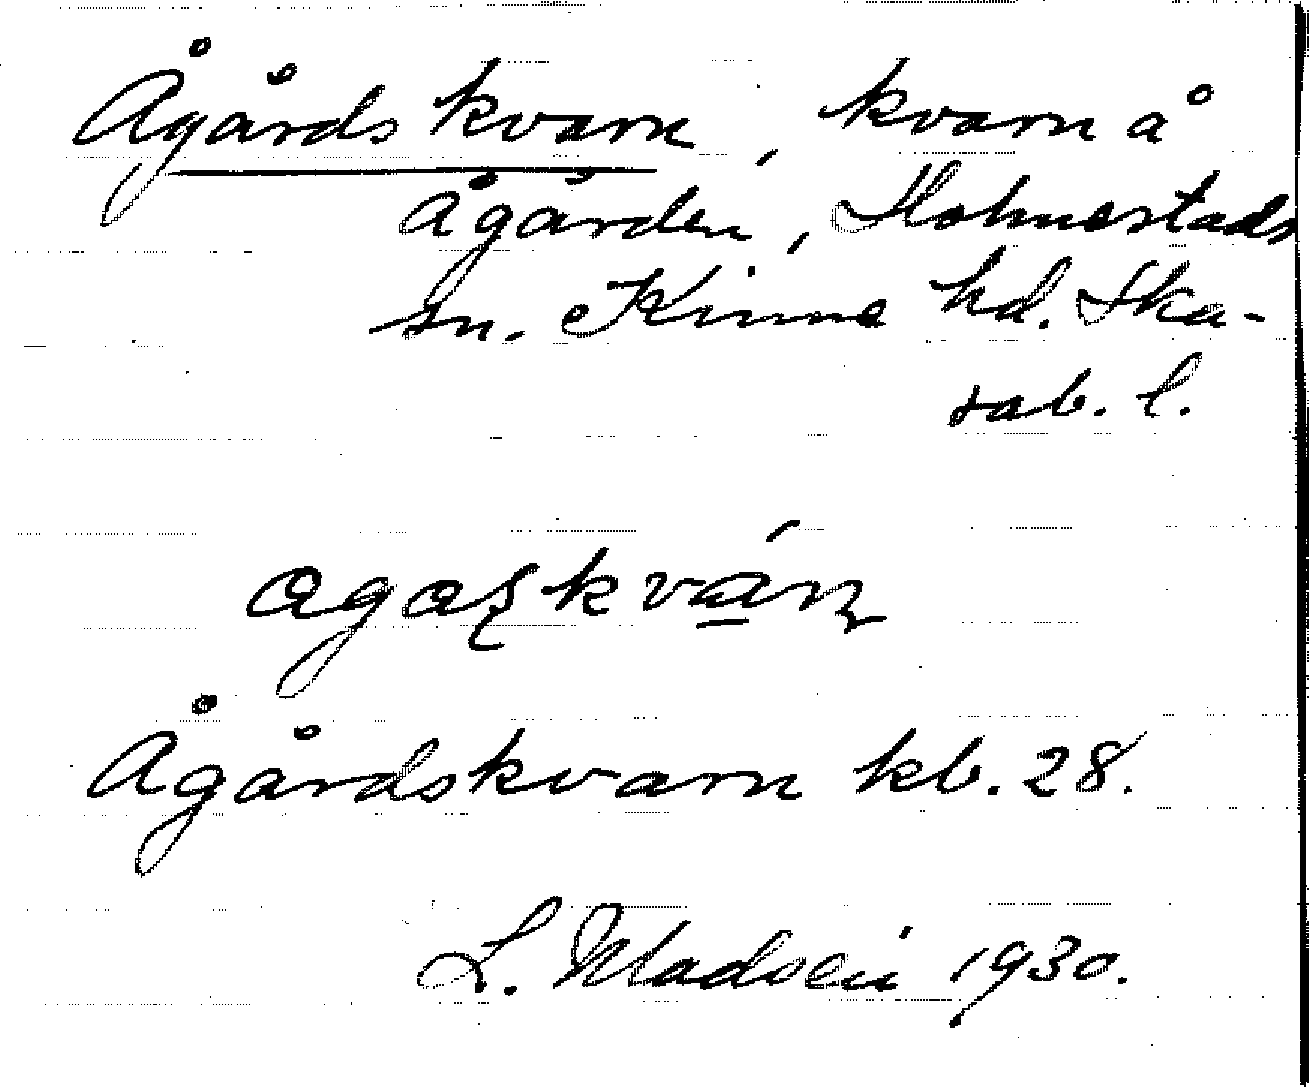 Ågårds kvarn, kvarn å
Ågården, Holmestads
sn. Kinne hd. Ska-
rab. l.
agaʂkván
Ågårdskvarn kb. 28.
L. Madsén 1930.